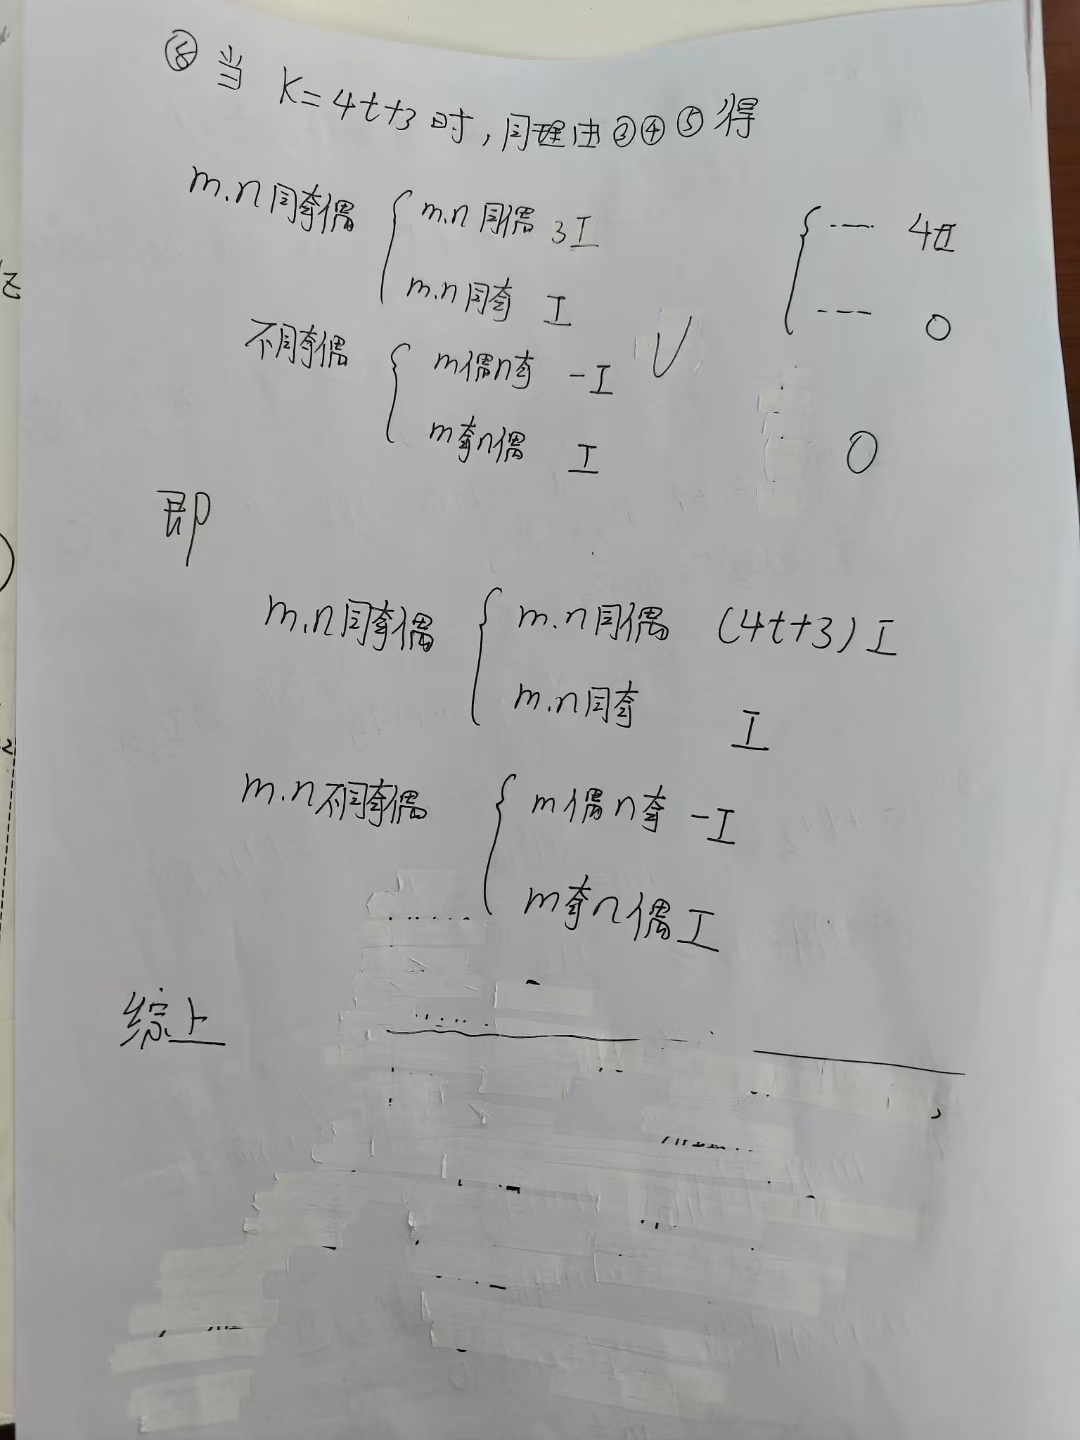 ⑧ 当 K=4t+3 时, 同理由③④⑤得
m.n同奇偶 { m.n同偶 3I
m.n同奇 I
{ ---- 4I
---- 0
不同奇偶 { m偶n奇 -I √
m奇n偶 I
0
即
m.n同奇偶 { m.n同偶 (4t+3)I
m.n同奇 I
m.n不同奇偶 { m偶n奇 -I
m奇n偶 I
综上